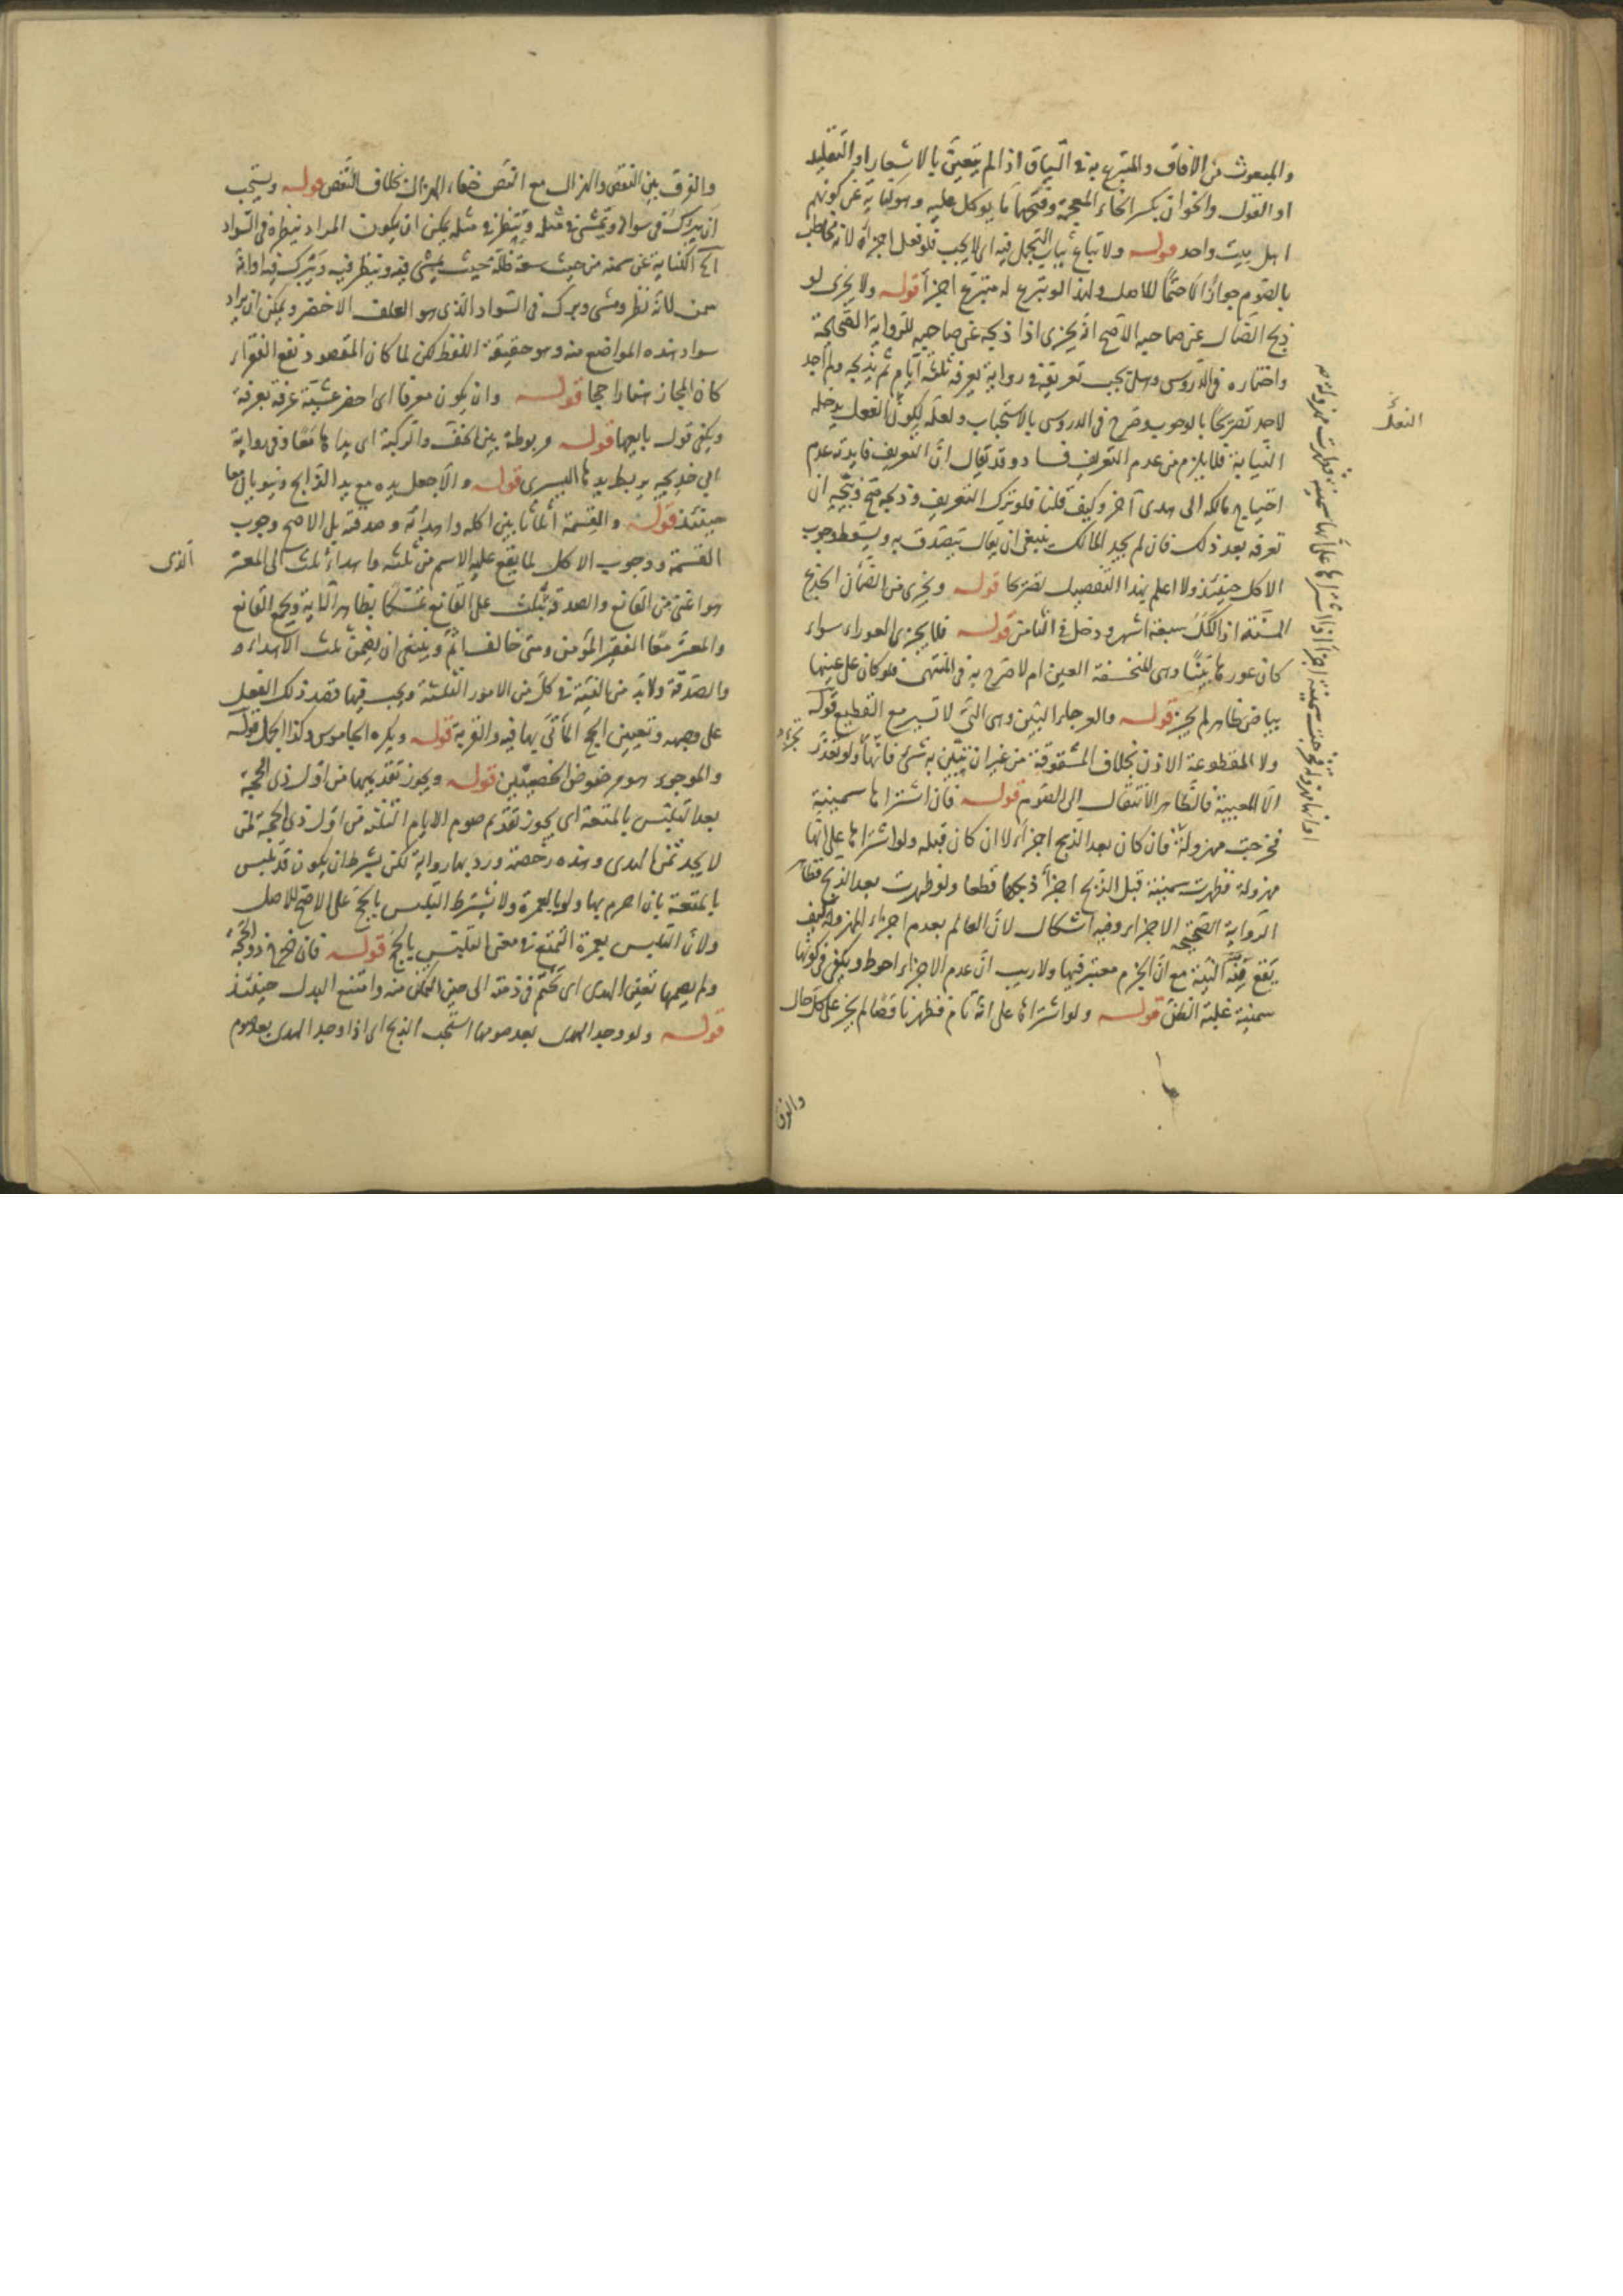 والمبعوث من الآفاق والمتبرع به في السياق اذا لم يتعين بالاشعار او التقليد
او القول والخوان بكسر الخاء المعجمة وضمها ما يوكل عليه وهو كناية عن كونهم
اهل بيت واحد قوله ولا تباع ثياب التجمل فيه اي لا يجب فلو فعل اجزأه لانه مخاطب
بالصوم جوازا لا حتما للاصل ولهذا لو تبرع له متبرع اجزأ قوله ولا يجزي لو
ذبح الضال عن صاحبه الاصح انه يجزي اذا ذبحه عن صاحبه للرواية الصحيحة
واختاره في الدروس وهل يجب تعريفه في رواية يعرفه ثلثة ايام ثم يذبحه ولم اجد
لاحد تصريحا بالوجوب وصرح في الدروس بالاستحباب ولعله لكون الفعل يدخله
النيابة فلا يلزم من عدم التعريف فساد وقد يقال ان التعريف فايدته عدم
احتياج مالكه الى هدي آخر وكيف قلنا فلو ترك التعريف وذبحه صح ويتجه ان
تعرفه بعد ذلك فان لم يجد المالك ينبغي ان يقال يتصدق به ويسقط وجوب
الاكل حينئذ ولا اعلم بهذا التفصيل تصريحا قوله ويجزي من الضان الجذع
لسنته اذا اكمل سبعة اشهر ودخل في الثامن قوله فلا يجزي العوراء سواء
كان عورها بينا وهي المنخسفة العين ام لا صرح به في المنتهى فلو كان على عينها
بياض ظاهر لم يجز قوله والعرجاء البين وهي التي لا تسير مع القطيع قوله
ولا المقطوعة الاذن بخلاف المشقوقة من غير ان يبين به شئ فانها ولو تعذر
تجزء
الا المعيبة فالظاهر الانتقال الى الصوم قوله فان اشتراها سمينة
فخرجت مهزولة فان كان بعد الذبح اجزأه لا ان كان قبله ولو اشتراها على انها
مهزولة فظهرت سمينة قبل الذبح اجزأ ذبحها قطعا ولو ظهرت بعد الذبح فظاهر
الرواية الصحيحة الاجزاء وفيه اشكال لان العالم بعدم اجزاء المهزولة كيف
يقع منه النية مع ان الجزم معتبر فيها ولا ريب ان عدم الاجزاء احوط ويكفي في كونها
سمينة غلبة الظن قوله ولو اشتراها على انه تام فظهر ناقصا لم يجز على كل حال
او انها مهزولة فخرجت سمينة اجزأ اذا اشتراها على انها سمينة فظهرت مهزولة
والفرق
والفرق بين النقص والهزال مع النقص خفاء الهزال بخلاف النقص قوله ويستحب
ان يبرك في سواد ويمشي في مثله وينظر في مثله يمكن ان يكون المراد بنظره في السواد
الخ الكناية عن سمنه من حيث سعة ظله حيث يمشي فيه وينظر فيه ويبرك فيه او انه
سمن لانه نظر ومشى وبرك في السواد الذي هو العلف الاخضر ويمكن ان يراد
سواد هذه المواضع منه وهو حقيقة اللفظ لكن لما كان المقصود نفع الفقراء
كان المجاز هنا راجحا قوله وان يكون معرفا اي احضر عشية عرفة بعرفة
ويكفي قول بايعها قوله مربوطة بين الخف والركبة اي يداها معا وفي رواية
ابي خديجة يربط يدها اليسرى قوله والا جعل يده مع يد الذابح وينويان معا
حينئذ قوله والقسمة اثلاثا بين اكله واهدائه وصدقته بل الاصح وجوب
القسمة ووجوب الاكل لما يقع عليه الاسم من ثلثه واهداء ثلث الى المعتر
الذي
هو اغنى من القانع والصدقة بثلث على القانع تمسكا بظاهر الآية ويجمع القانع
والمعتر معا الفقير المؤمن ومتى خالف اثم وينبغي ان يضمن ثلث الاهداء
والصدقة ولا بد من النية في كل من الامور الثلثة ويجب فيها قصد ذلك الفعل
على وجهه وتعيين الحج المأتي بها فيه والقربة قوله ويكره الجاموس وكذا الجمل قوله
والموجوء هو مرضوض الخصيتين قوله ويجوز تقديمها من اول ذي الحجة
بعد التلبس بالمتعة اي يجوز تقديم صوم الايام الثلثة من اول ذي الحجة لمن
لا يجد ثمن الهدي وهذه رخصة ورد بها رواية لكن بشرط ان يكون قد تلبس
بالمتعة بان احرم بها ولو بالعمرة ولا يشترط التلبس بالحج على الاصح للاصل
ولان التلبس بعمرة التمتع في معنى التلبس بالحج قوله فان خرج ذو الحجة
ولم يصمها تعين الهدي اي تحتم في ذمته الى حين التمكن منه وامتنع البدل حينئذ
قوله ولو وجد الهدي بعد صومها استحب الذبح اي اذا وجد الهدي بعد صوم